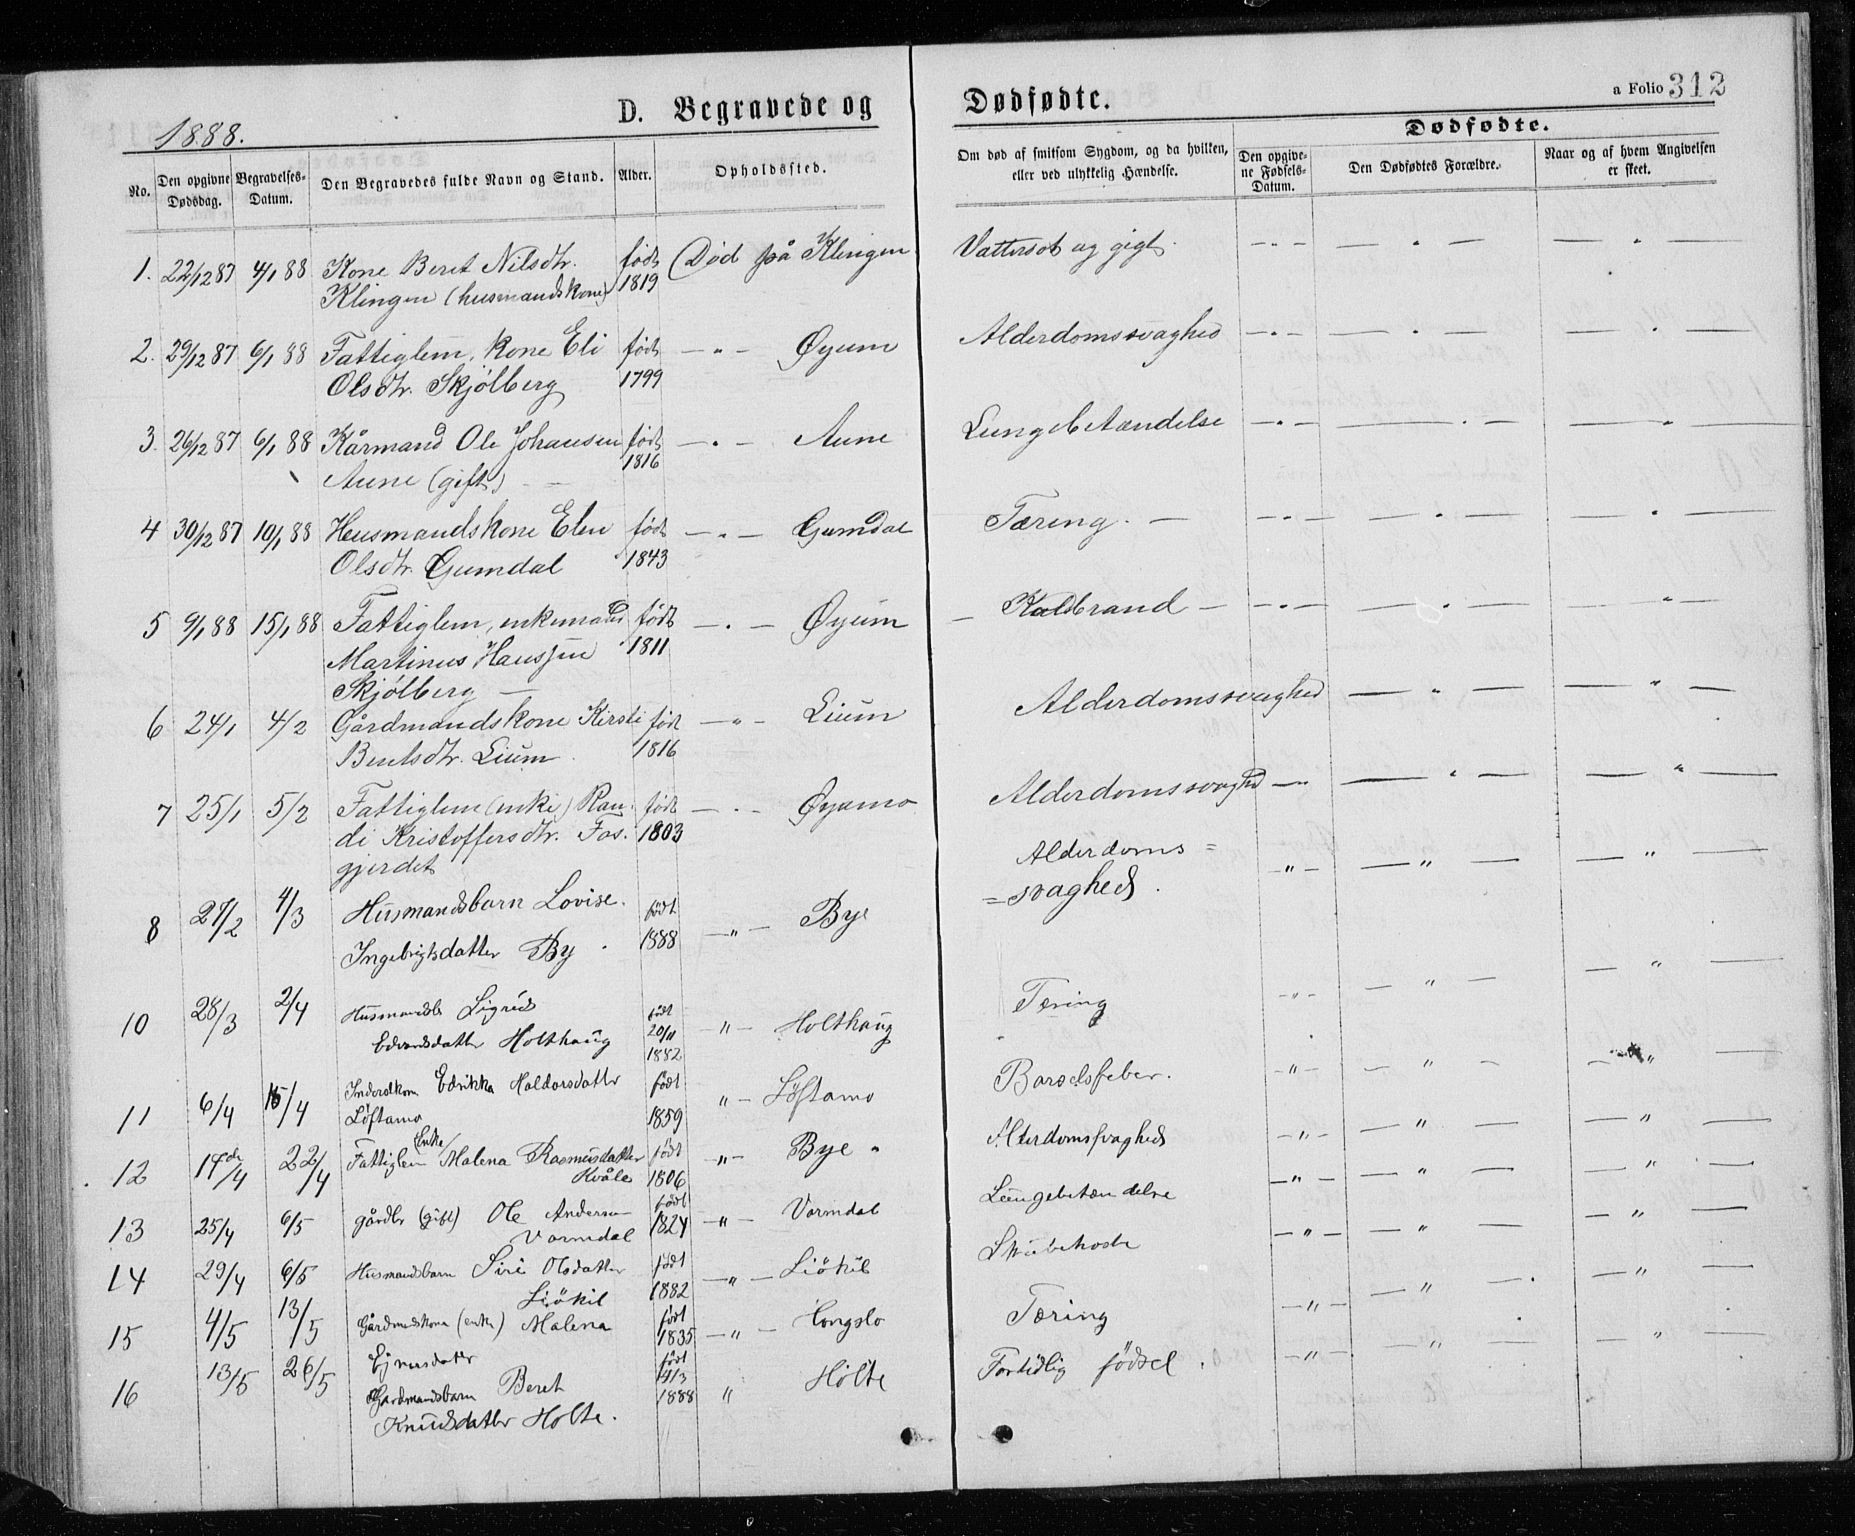 1888.
D. Begravede og
Dødfødte.
a Folio 312
No.
Den opgivne Dødsdag.
Begravelses-Datum.
Den Begravedes fulde Navn og Stand.
Alder.
Opholdssted.
Om død af smitsom Sygdom, og da hvilken, eller ved ulykkelig Hændelse.
Dødfødte.
Den opgivne Fødsels-Datum.
Den Dødfødtes Forældre.
Naar og af hvem Angivelsen er skeet.
1. 22/12 87 4/1 88 Kone Beret Nilsdtr. født Død på Klingen Vattersot og gigt.
Klingen (husmandskone) 1819
2. 29/12 87 6/1 88 Fattiglem, kone Eli født — " — Øyum Alderdomssvaghed
Olsdtr. Skjølberg 1799
3. 26/12 87 6/1 88 Kårmand Ole Johansen født — " — Aune Lungebetændelse
Aune (gift) 1816
4 30/12 87 10/1 88 Husmandskone Elen født — " — Gumdal Tæring.
Olsdtr. Gumdal 1843
5 9/1 88 15/1 88 Fattiglem, enkemand født — " — Øyum Koldbrand
Martinus Hansen 1811
Skjølberg
6 24/1 4/2 Gårdmandskone Kirsti født — " — Lium Alderdomssvaghed
Bentsdtr. Lium 1816
7 25/1 5/2 Fattiglem (enke) Ran- født — " — Øyamo Alderdomssvaghed
di Kristoffersdtr. Fos- 1803
gjerdet
8 27/2 4/3 Husmandsbarn Lovise født — " — Bye Alderdoms=
Ingebrigtsdatter By 1888 =svaghed.
10 28/3 2/4 Husmandsb Sigrid født 20/11 — " — Holthaug Tæring
Edvardsdatter Holthaug 1882
11 6/4 15/4 Inderstkone Edrikka Haldorsdatter født " — Løftamo Barselsfeber.
Løftamo 1859
12 14de/4 22/4 Fattiglem Enke Malena Rasmusdatter født — " — Bye Alderdomsfvaghed
Kvåle 1806
13 25/4 6/5 gårdbr (gift) Ole Andersen født — " — Vormdal Lungebetændelse
Vormdal 1824
14 29/4 6/5 Husmandsbarn Siri Olsdatter født — " — Liøkil Strubehoste
Liøkil 1882
15 4/5 13/5 Gårdmandskone (enke) Malena født — " — Tæring
Ejnersdatter 1835
16 13/5 26/5 Gårdmandsbarn Beret født " Holte Fortidlig fødsel.
Knudsdatter Holte. 1888